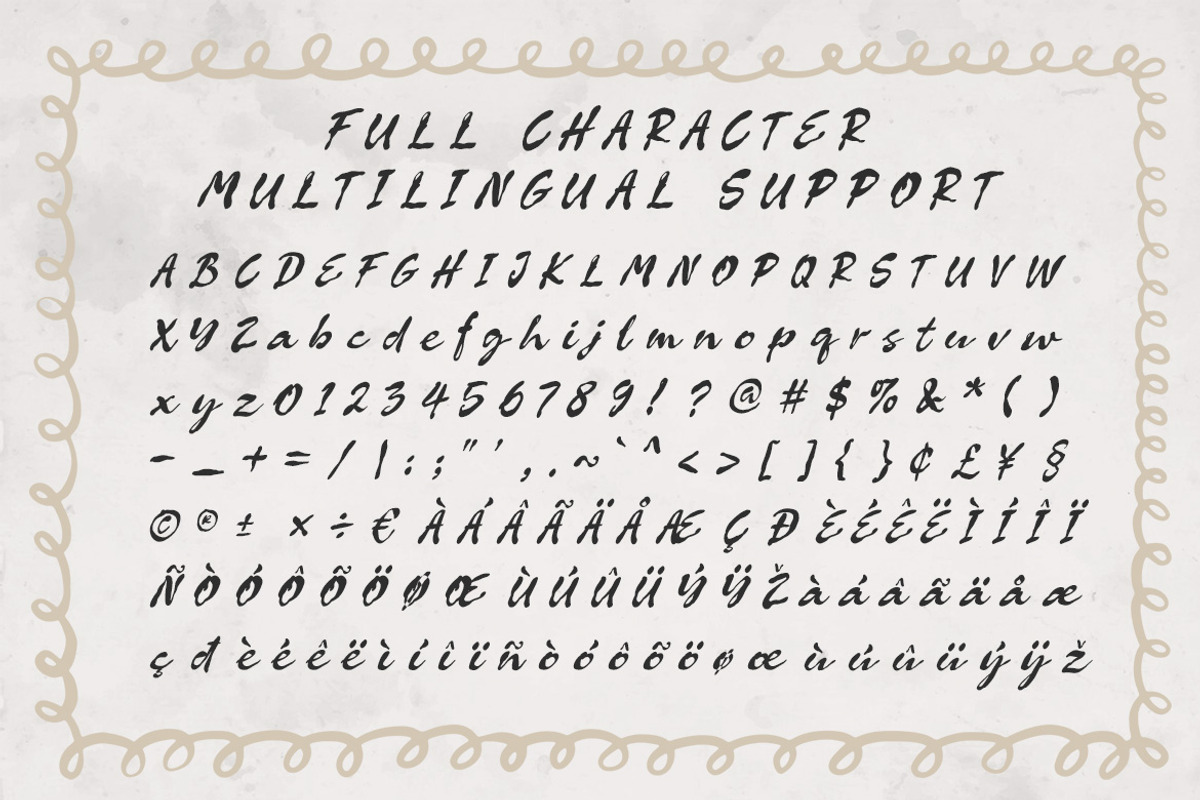 FULL CHARACTER
MULTILINGUAL SUPPORT
A B C D E F G H I J K L M N O P Q R S T U V W
X Y Z a b c d e f g h i j l m n o p q r s t u v w
x y z 0 1 2 3 4 5 6 7 8 9 ! ? @ # $ % & * ( )
- _ + = / | : ; " ' , . ~ ` ^ < > [ ] { } ¢ £ ¥ §
© ® ± × ÷ € À Á Â Ã Ä Å Æ Ç Ð È É Ê Ë Ì Í Î Ï
Ñ Ò Ó Ô Õ Ö Ø Œ Ù Ú Û Ü Ý Ÿ Ž à á â ã ä å æ
ç đ è é ê ë ì í î ï ñ ò ó ô õ ö ø œ ù ú û ü ý ÿ ž